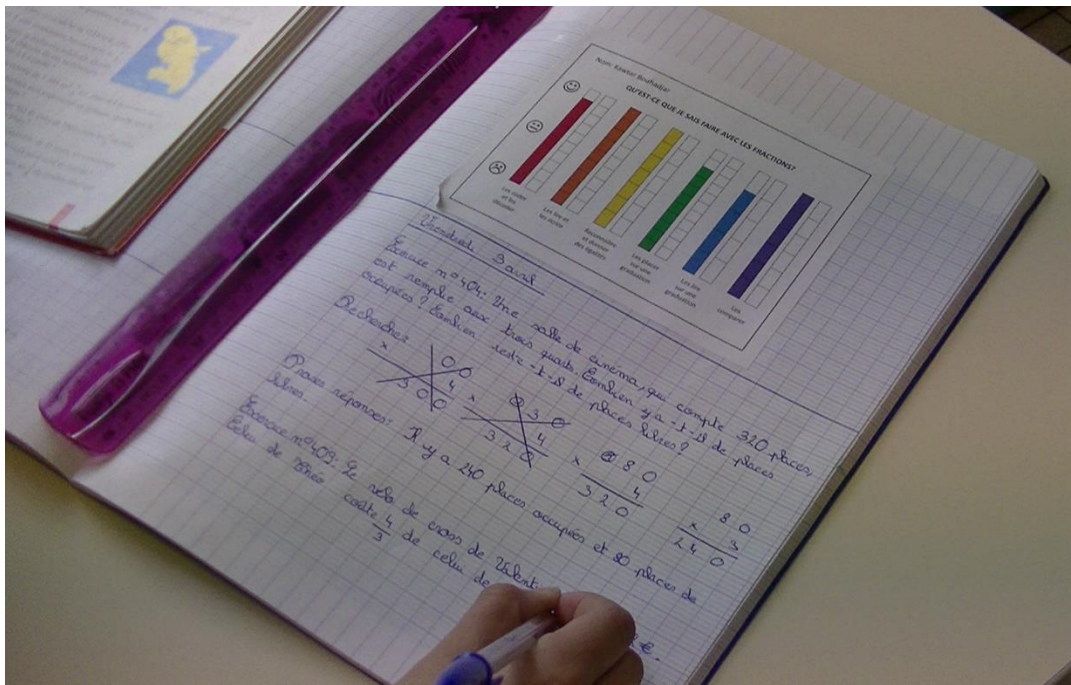 Nom: Kawtar Bouhadjar
QU'EST-CE QUE JE SAIS FAIRE AVEC LES FRACTIONS?
Les coder et les décoder
Les lire et les écrire
Reconnaître et donner des égalités
Les placer sur une graduation
Les lire sur une graduation
Les comparer
Vendredi 3 avril
Exercice n°404: Une salle de cinéma, qui compte 320 places,
est remplie aux trois quarts. Combien y a-t-il de places
occupées? Combien reste-t-il de places libres?
Recherches
80
x 4
320
80
x 3
240
Phrases réponses: Il y a 240 places occupées et 80 places de
libres.
Exercice n°409: Le vélo de cross de
celui de Théo coûte 4/3 de celui de
€.